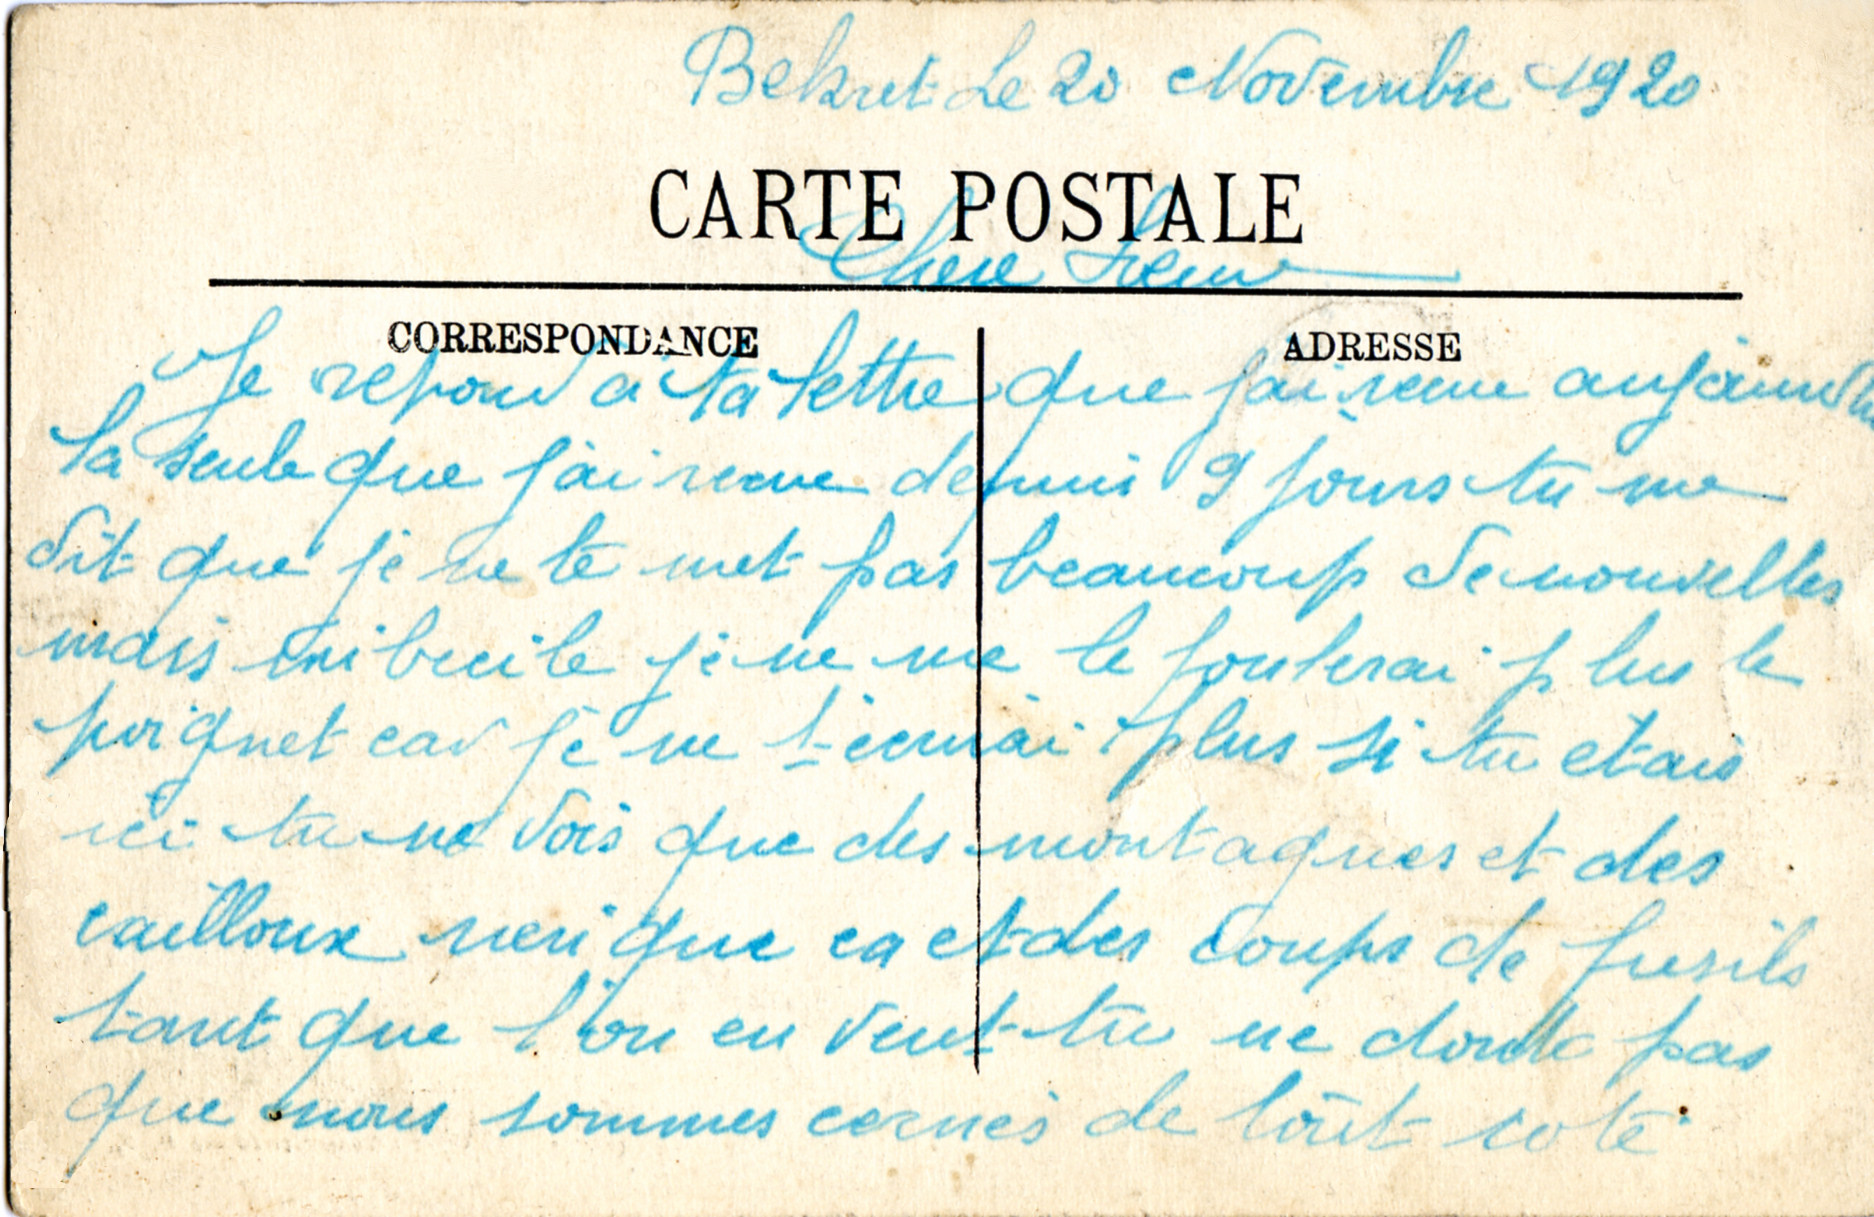 Bekret Le 20 Novembre 1920
CARTE POSTALE
Chere
CORRESPONDANCE
ADRESSE
Je repond a ta lettre que jai recue aujourdhu
la seule que j'ai recue depuis 9 jours tu me
dit que je ne te met pas beaucoup de nouvelles
mais imbecile je ne me le foulerai plus le
poignet car je ne t-ecrirai plus si tu etais
ici tu ne vois que des montagnes et des
cailloux rien que ca et des coups de fusils
tant que l'on en veut tu ne doute pas
que nous sommes cernés de tout coté